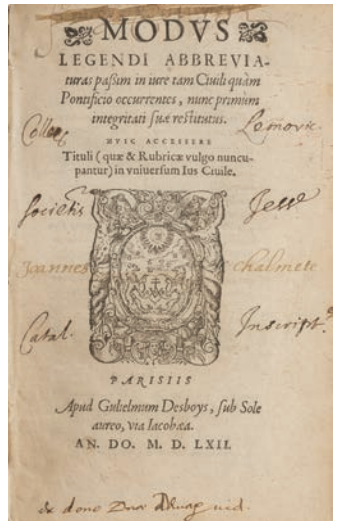 MODVS
LEGENDI ABBREVIA-
turas passim in iure tam Ciuili quàm
Pontificio occurrentes, nunc primùm
integritati suæ restitutus.
Colleg
Lemovic.
HVIC ACCESSERE
Tituli (quæ & Rubricæ vulgo nuncu-
pantur) in vniuersum Ius Ciuile.
societis
Jesu
Joannes
chalmete
Catal.
Inscript.
PARISIIS
Apud Gulielmum Desboys, sub Sole
aureo, via Iacobæa.
AN. DO. M. D. LXII.
ex dono